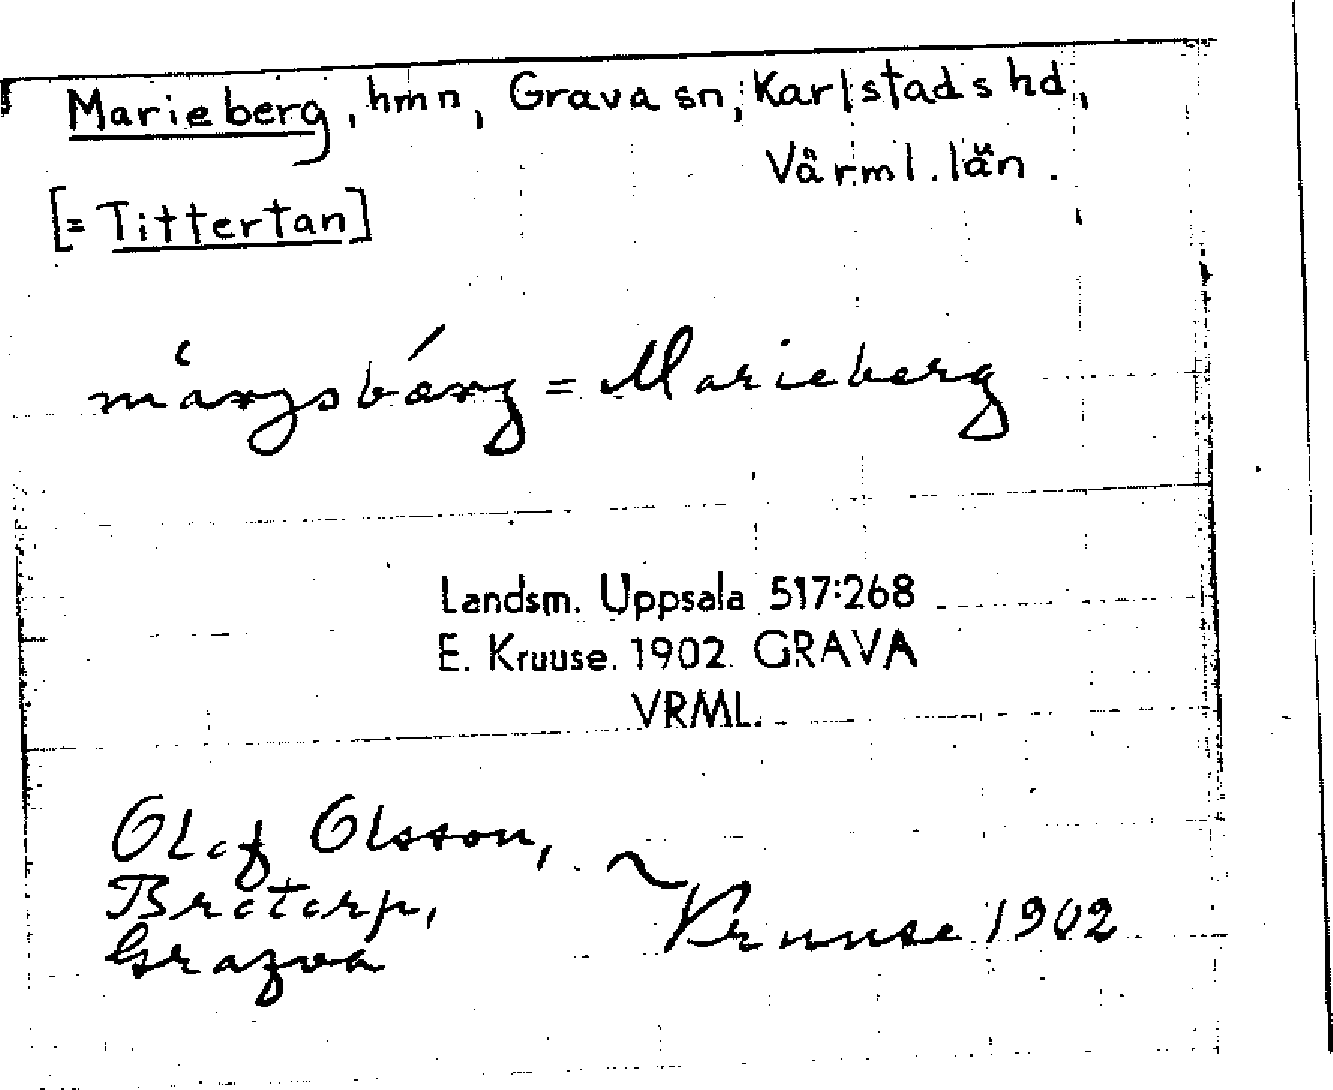 Marieberg, hmn, Grava sn, Karlstads hd,
Värml. län.
[= Tittertan]
= Marieberg
Landsm. Uppsala 517:268
E. Kruuse. 1902. GRAVA
VRML.
Olof Olsson,
Brotorp, Kruuse 1902
Grafva